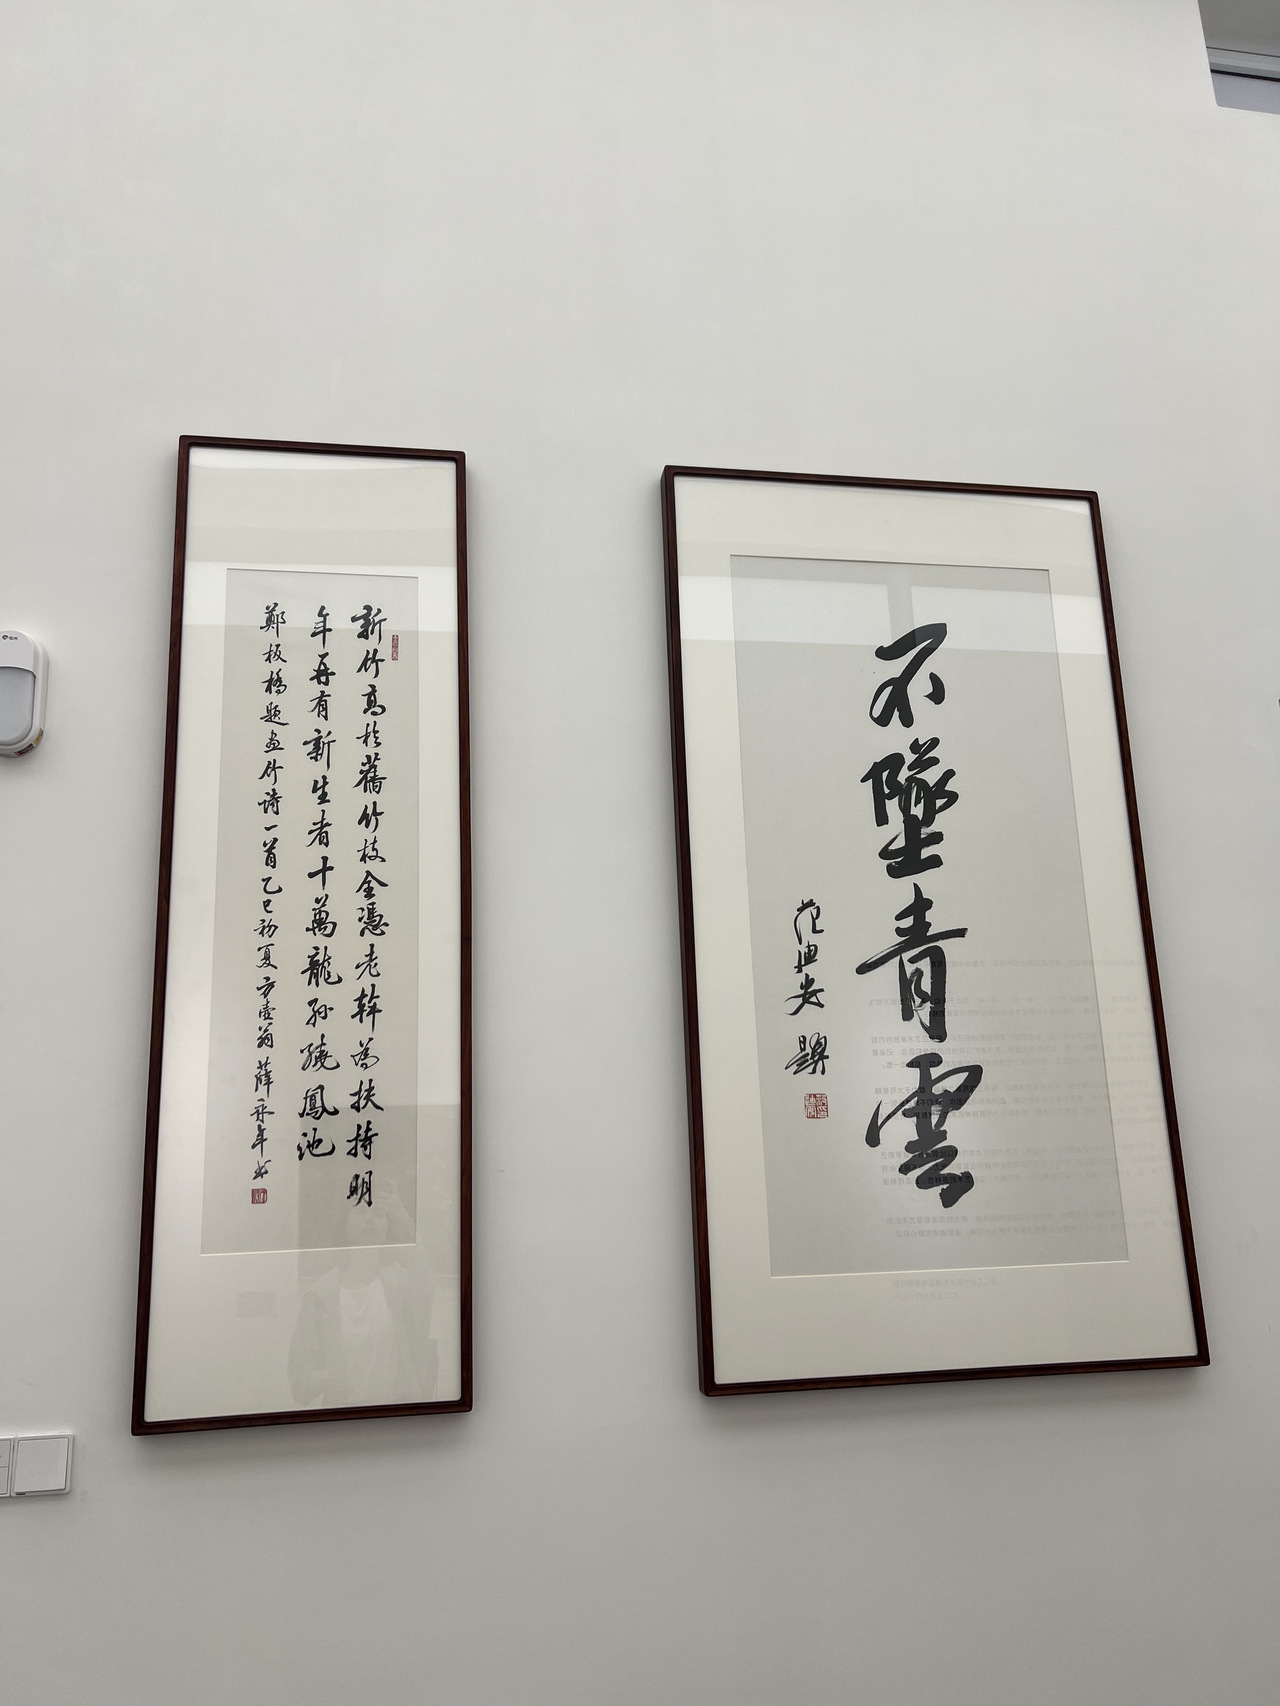 新竹高於舊竹枝全憑老幹為扶持明
年再有新生者十萬龍孫繞鳳池
鄭板橋題画竹诗一首乙巳初夏方壺翁薛永年书
不墜青雲
范迪安題